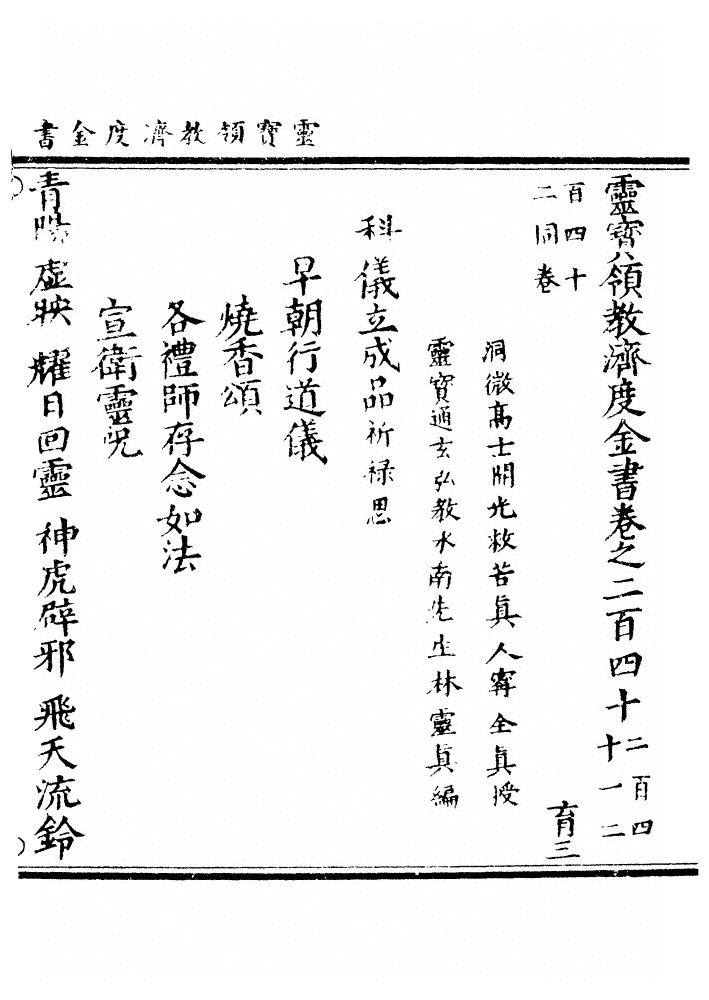 靈寶領教濟度金書
靈寶領教濟度金書卷之二百四十二百四十一二
百四十二同卷
育三
洞微高士開光救苦眞人甯全眞授
靈寶通玄弘教水南先生林靈眞編
科儀立成品祈禄思
早朝行道儀
燒香頌
各禮師存念如法
宣衛靈呪
青陽虛映 耀日回靈 神虎辟邪 飛天流鈴